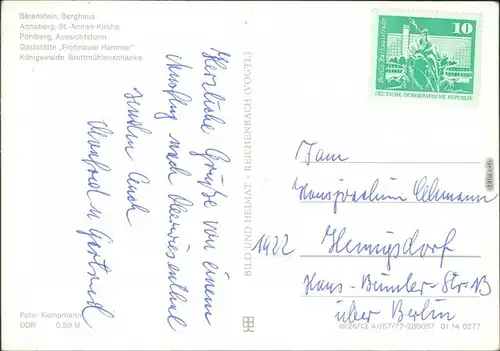 Bärenstein, Berghaus
Annaberg, St.-Annen-Kirche
Pöhlberg, Aussichtsturm
Gaststätte „Frohnauer Hammer"
Königswalde Brettmühlenschänke
Herzliche Grüße von einem
Ausflug nach Oberwiesenthal
senden Euch
Manfred u Gertrud
BILD UND HEIMAT REICHENBACH (VOGTL)
10
Berlin, Rathausstraße
DEUTSCHE DEMOKRATISCHE REPUBLIK
Fam
Hansjoachim
1422 Hennigsdorf
Hans-Beimler-Str
über Berlin
Foto: Kampmann
DDR 0,20 M
III/26/13 A1/67/77-280057 01 14 0277